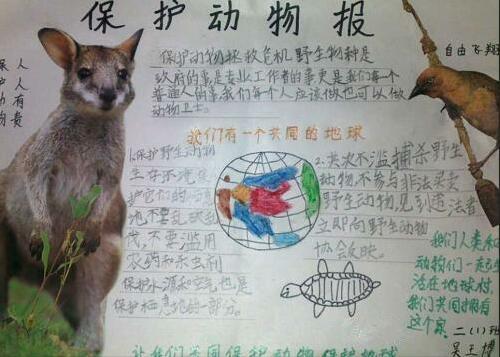 保护动物报
保护动物拯救危机野生物种是
政府的事是专业工作者的事更是我们每一个
普通人的事我们每个人应该做也可以做
动物卫士。
自由飞翔
保护动物
人人有责
我们有一个共同的地球
1.保护野生动物
生存环境
护它们的
地不要乱砍
伐,不要滥用
农药和杀虫剂
保护水源和空气也是
保护栖息地的一部分。
2.不滥捕杀野生
动物,不参与非法买卖
野生动物见到违法者
立即向野生动物
协会反映。
我们人类和
动物们一起生
活在地球村
我们共同拥有
这个家
二(1)班
吴玉
让我们共同保护动物保护地球